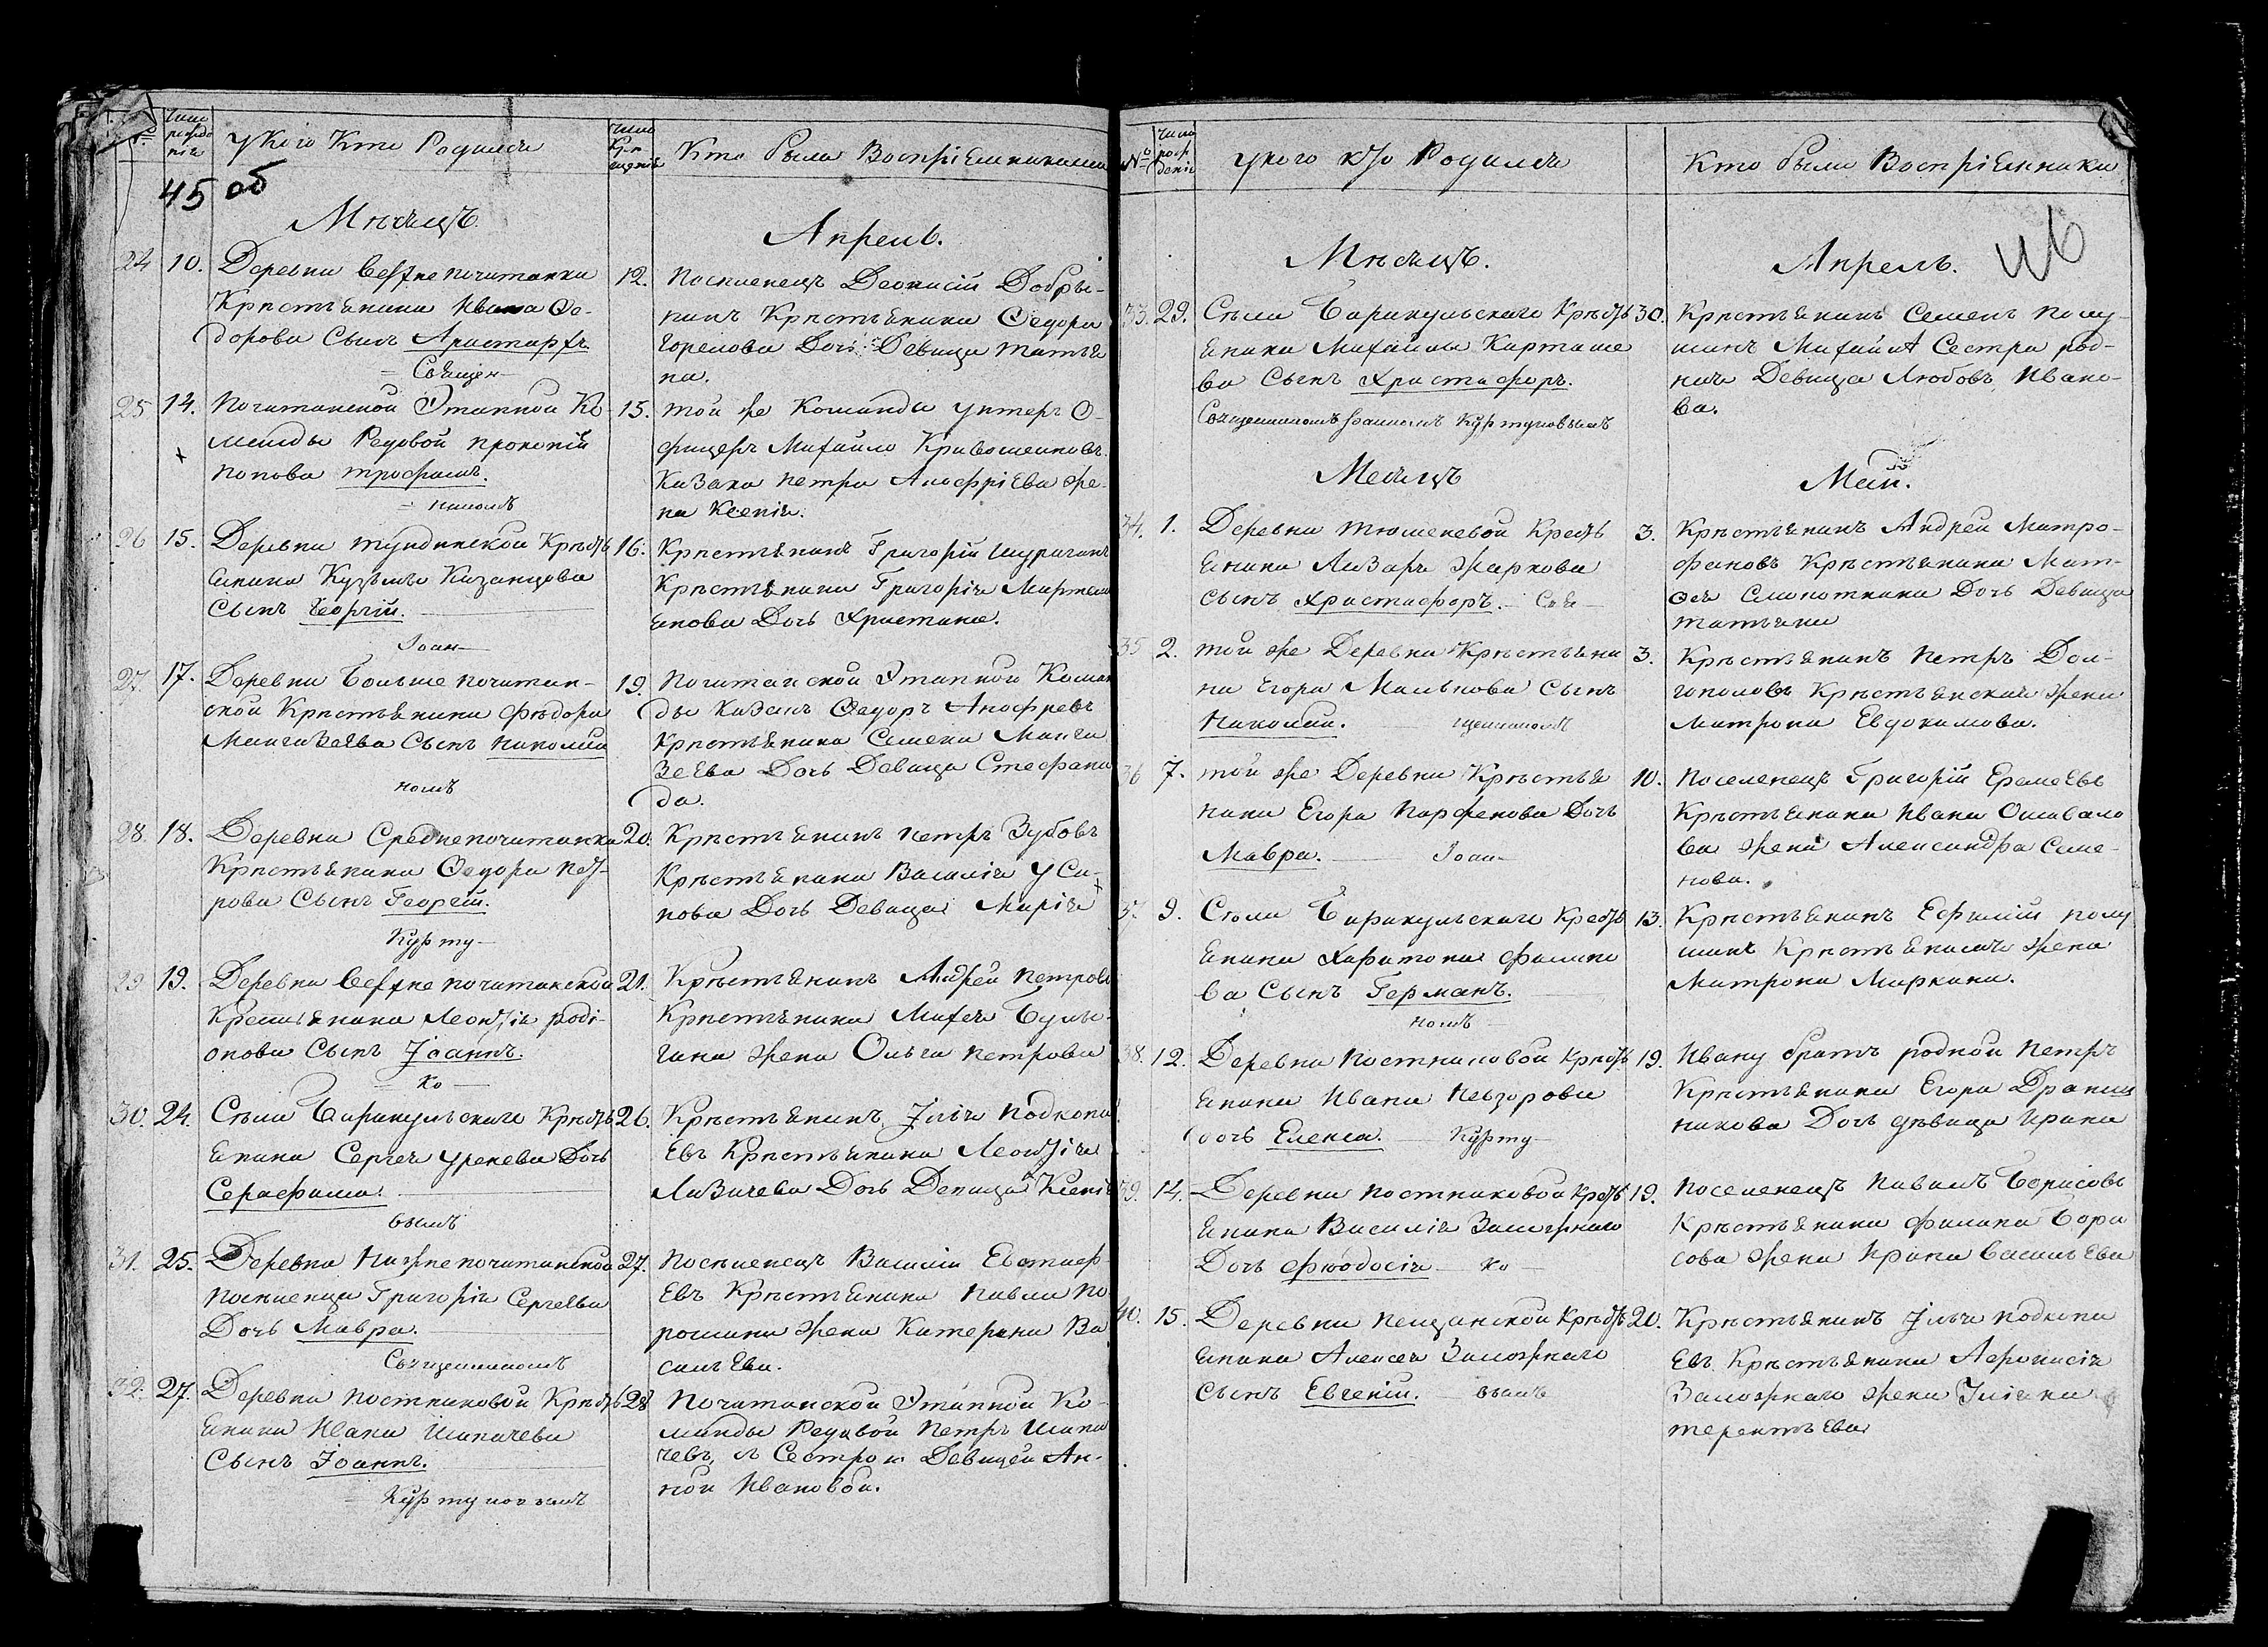 №
Число рожде нія
У Кого Кто Родился
число Кре щенія
Кто были Воспріемниками
45 об
Мѣсяцъ
Апрель.
24 10. Деревни Верхне почитанки
Крѣстьянина Ивана Ѳе-
дорова Сынъ Аристархъ
= Священ
12. Поселенецъ Деонисій Добры-
нинъ Крѣстьянина Ѳедора
Горелова Дочь Девица татья
на.
25 14. Почитанской Этапной Ко
манды Редовой прокопій
попова трофимъ.
= никомъ
15. той же Команды унтеръ О-
фицеръ Михайло Кривошеиновъ.
Казака петра Анофріева же-
на Ксенія.
26 15. Деревни тундинской Крѣсть
янина Кузьмы Казанцова
Сынъ Георгій.
Іоан
16. Крѣстьянинъ Григорій
Крѣстьянина Григорія Мартем
янова Дочь Христина.
27. 17. Деревни Больше почитан-
ской Крѣстьянина фѣдора
Мангазеева Сынъ николай
номъ
19. Почитанской Этапной Коман
ды Казакъ Ѳедоръ Анофревъ
Крѣстьянина Семена Манга
зеева Дочь Девица Стефани
да.
28. 18. Деревни Среднепочитанки
Крѣстьянина Ѳедора пет-
рова Сынъ Георгій.
Курту
20. Крѣстьянинъ петръ Зубовъ
Крѣстьянина Василія Уса-
нова Дочь Девица Марія
29 19. Деревни Верхне почитанской
Крестьянина Леонтія роді-
онова Сынъ Іоаннъ.
= ко
21. Крѣстьянинъ Андрей петровъ
Крѣстьянина Михея Булы-
гина жена Ольга петрова
30. 24. Села Барандульскаго Крѣсть
янина Сергея Дочь
Серафима.
вымъ
26. Крѣстьянинъ Ілья Подкопа
евъ Крѣстьянина Леонтія
Лазичева Дочь Девица Ксенія
31. 25. Деревни Нижнепочитанской
поселенца Григорія Сергеева
Дочь Мавра.
Священникомъ
27. Поселенецъ Василій Евстаф
евъ Крѣстьянина павла по
рошина жена Катерина Ва
сильева.
32. 27. Деревни постниковой Крѣсть
янина Ивана Шипачева
Сынъ Іоаннъ.
= Куртуковымъ
28 Почитанской Этапной Ко
манды Редовой петръ Шипа
чевъ, и Сестрои Девицей Ан-
ной Ивановой.
№ число рож денія
у кого кто Родился
Кто были Воспріемники
46
Мѣсяцъ.
Апрель.
33. 29. Села Барандульскаго Крѣсть
янина Михайла Карташе
ва Сынъ Христофоръ.
Священникомъ Іоанномъ Куртуковымъ
30. Крѣстьянинъ Семенъ полу
шинъ Михайла Сестра род-
ная Девица Любовь Ивано-
ва.
Месяцъ
Май.
34. 1. Деревни тюменевой Кресть
янина Лазаря Жаркова
сынъ Христофоръ. Свя
3. Крѣстьянинъ Андрей Митро-
фановъ Крѣстьянина Мат-
ѳея Слипоткина Дочь Девица
татьяна
35 2. той же Деревни Крѣстьяни
на Егора Малькова Сынъ
Николай. щенникомъ
3. Крѣстьянинъ Петръ Дол-
гополовъ Крѣстьянская жена
Матрона Евдокимова.
36 7. той же Деревни Крѣстья
нина Егора парфенова Дочь
Мавра. Іоан
10. Поселенецъ Григорій Еремеевъ
Крѣстьянина Ивана Ошвало
ва жена Александра Симе-
нова.
37. 9. Села Барандульскаго Кресть
янина Харитона филипо
ва Сынъ Германъ.
номъ
13. Крѣстьянинъ Ефимій полу
шинъ Крѣстьянская жена
Матрона Маркина.
38. 12. Деревни постниковой Крѣсть
янина Ивана Невзорова
дочь Елена. Курту
19. Ивану братъ родной Петръ
Крѣстьянина Егора Драниш
никова Дочь дѣвица Ирина
39. 14. Деревни постниковой Кресть
янина Василія Заложнаго
Дочь Фѣодосія ко
19. поселенецъ Павелъ Борисовъ
Крѣстьянина филипа Бори
сова жена Ирина Васильева
40. 15. Деревни пещанской Крѣсть
янина Алексея Заложнаго
сынъ Евгеній. вымъ
20. Крѣстьянинъ Ілья подкопа
евъ Крѣстьянина Афонасія
Заложнаго жена Іуліяна
терентьева